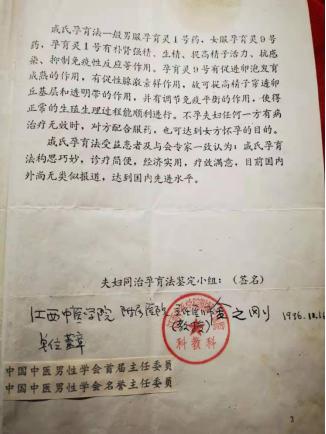 戚氏孕育法一般男服孕育灵1号药,女服孕育灵9号
药,孕育灵1号有补肾强精、生精、提高精子活力、抗感
染、抑制免疫性反应等作用。孕育灵9号有促进卵泡发育
成熟的作用,有促性腺激素样作用,故可提高精子穿透卵
丘基层和透明带的作用,并有调节免疫平衡的作用,使得
正常的生殖生理过程能顺利进行。不孕夫妇任何一方有病
治疗无效时,对方配合服药,也可达到女方怀孕的目的。
戚氏孕育法受益患者及与会专家一致认为:戚氏孕育
法构思巧妙,诊疗简便,经济实用,疗效满意,目前国内
外尚无类似报道,达到国内先进水平。
夫妇同治孕育法鉴定小组:(签名)
江西中医学院 附属医院 之刚 1986.10.16
(教授)
科教科
单位盖章
中国中医男性学会首届主任委员
中国中医男性学会名誉主任委员